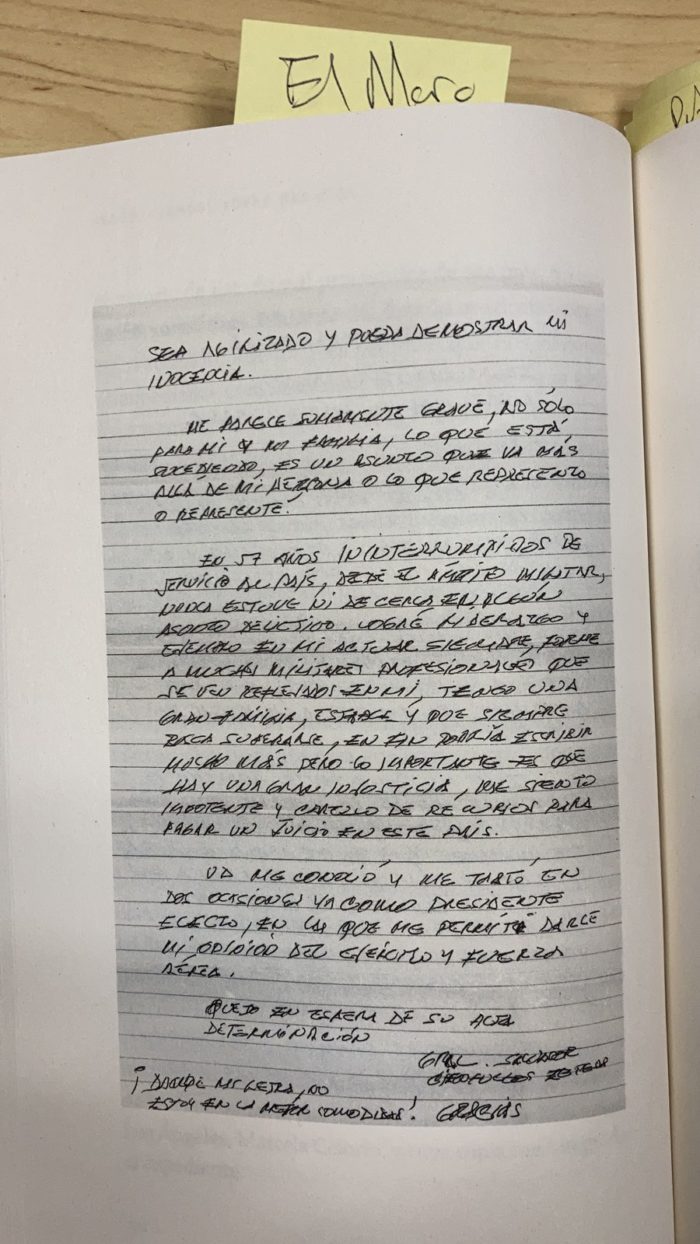 El Mero
SEA AGILIZADO Y PUEDA DEMOSTRAR MI
INOCENCIA.
ME PARECE SUMAMENTE GRAVE, NO SÓLO
PARA MI Y MI FAMILIA, LO QUE ESTÁ
SUCEDIENDO, ES UN ASUNTO QUE VA MÁS
ALLÁ DE MI PERSONA O LO QUE REPRESENTO
O REPRESENTÉ.
EN 57 AÑOS ININTERRUMPIDOS DE
SERVICIO AL PAÍS, DESDE EL ÁMBITO MILITAR,
NUNCA ESTUVE NI DE CERCA EN ALGÚN
ASUNTO DELICTIVO. LOGRÉ LIDERAZGO Y
EJEMPLO EN MI ACTUAR SIEMPRE, FORMÉ
A MUCHOS MILITARES PROFESIONALES QUE
SE VEN REFLEJADOS EN MI, TENGO UNA
GRAN FAMILIA, ESTABLE Y QUE SIEMPRE
BUSCA SUPERARSE, EN FIN PODRÍA ESCRIBIR
MUCHO MÁS PERO LO IMPORTANTE ES QUE
HAY UNA GRAN INJUSTICIA, ME SIENTO
IMPOTENTE Y CAREZCO DE RECURSOS PARA
PAGAR UN JUICIO EN ESTE PAÍS.
UD ME CONOCIÓ Y ME TRATÓ EN
DOS OCASIONES YA COMO PRESIDENTE
ELECTO, EN LAS QUE ME PERMITÍ DARLE
MI OPINIÓN DEL EJÉRCITO Y FUERZA
AÉREA.
QUEDO EN ESPERA DE SU ALTA
DETERMINACIÓN
GRAL. SALVADOR
CIENFUEGOS ZEPEDA
¡DISCULPE MI LETRA, NO
ESTOY EN LA MEJOR COMODIDAD! GRACIAS